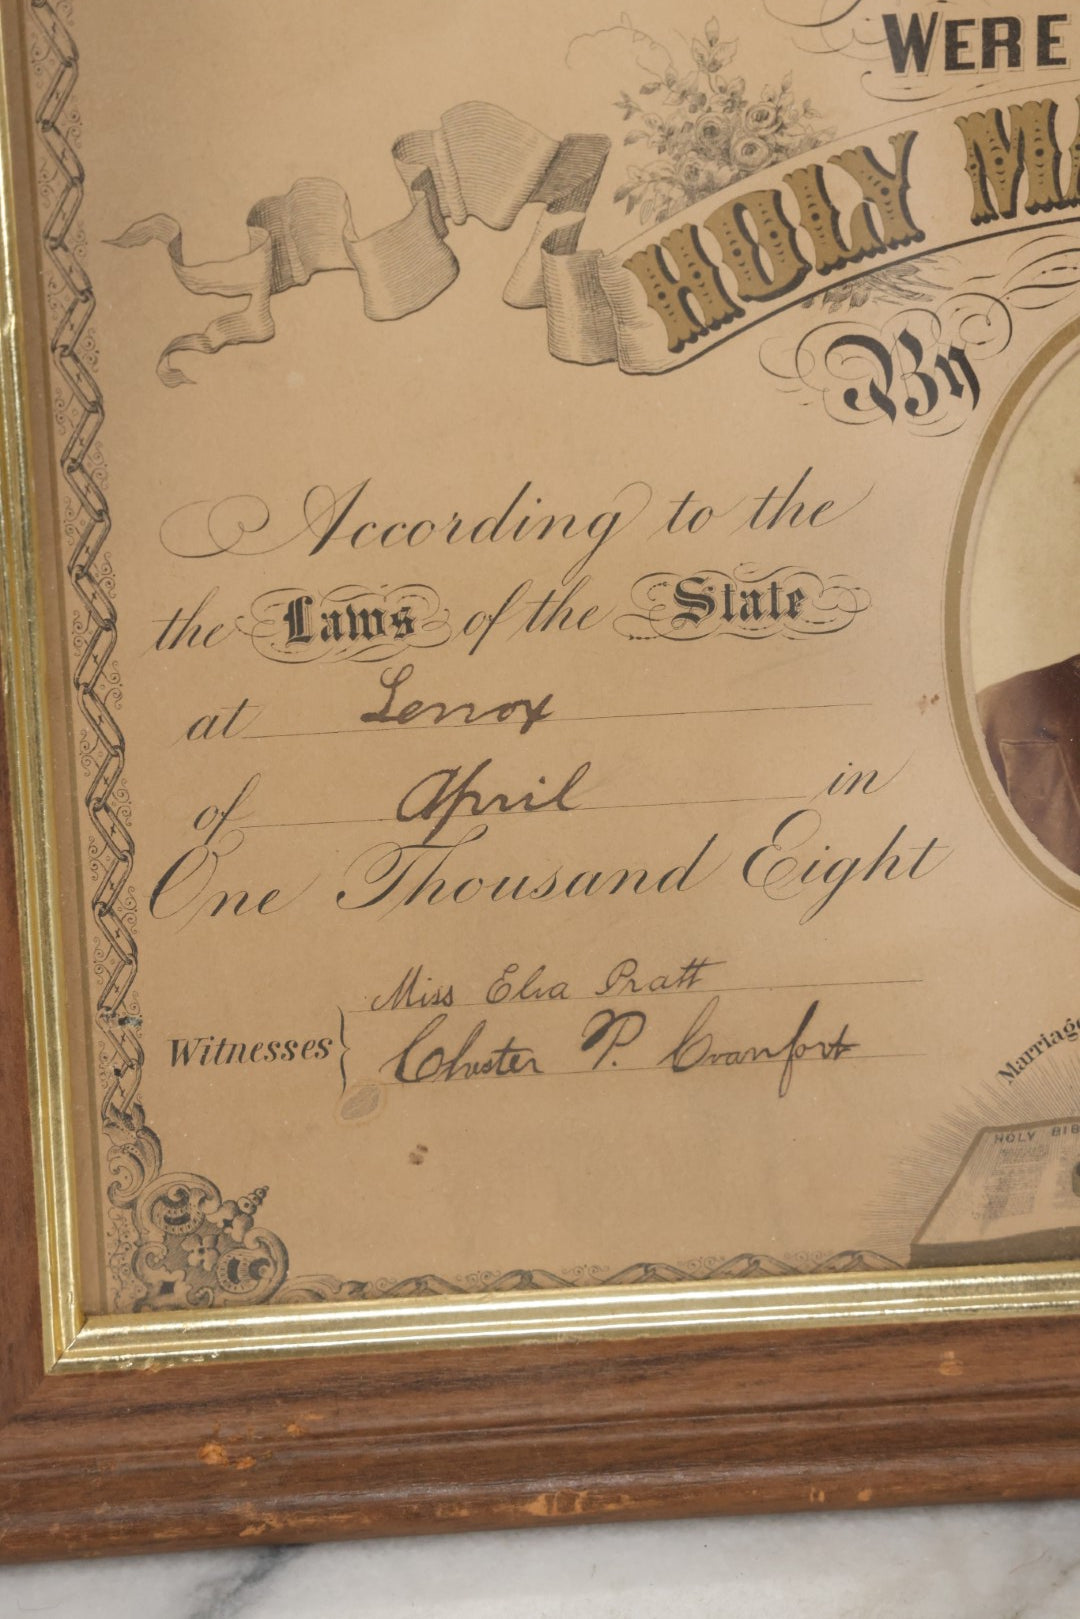 WERE
HOLY MA
By
According to the
the Laws of the State
at Lenox
of April in
One Thousand Eight
Miss Elva Pratt
Witnesses
Chester P. Cranfort
Marriage
HOLY BIB